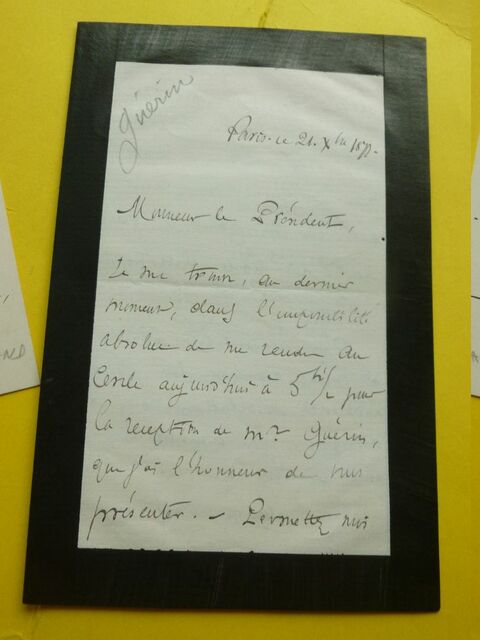 Guérin
Paris. ce 21. Xbre
Monsieur le Président,
Je me trouve, au dernier
moment, dans l'impossibilité
absolue de me rendre au
Cercle aujourd'hui à 5h 1/2 pour
la reception de Mr. Guérin,
que j'ai l'honneur de vous
présenter. — Permettez moi